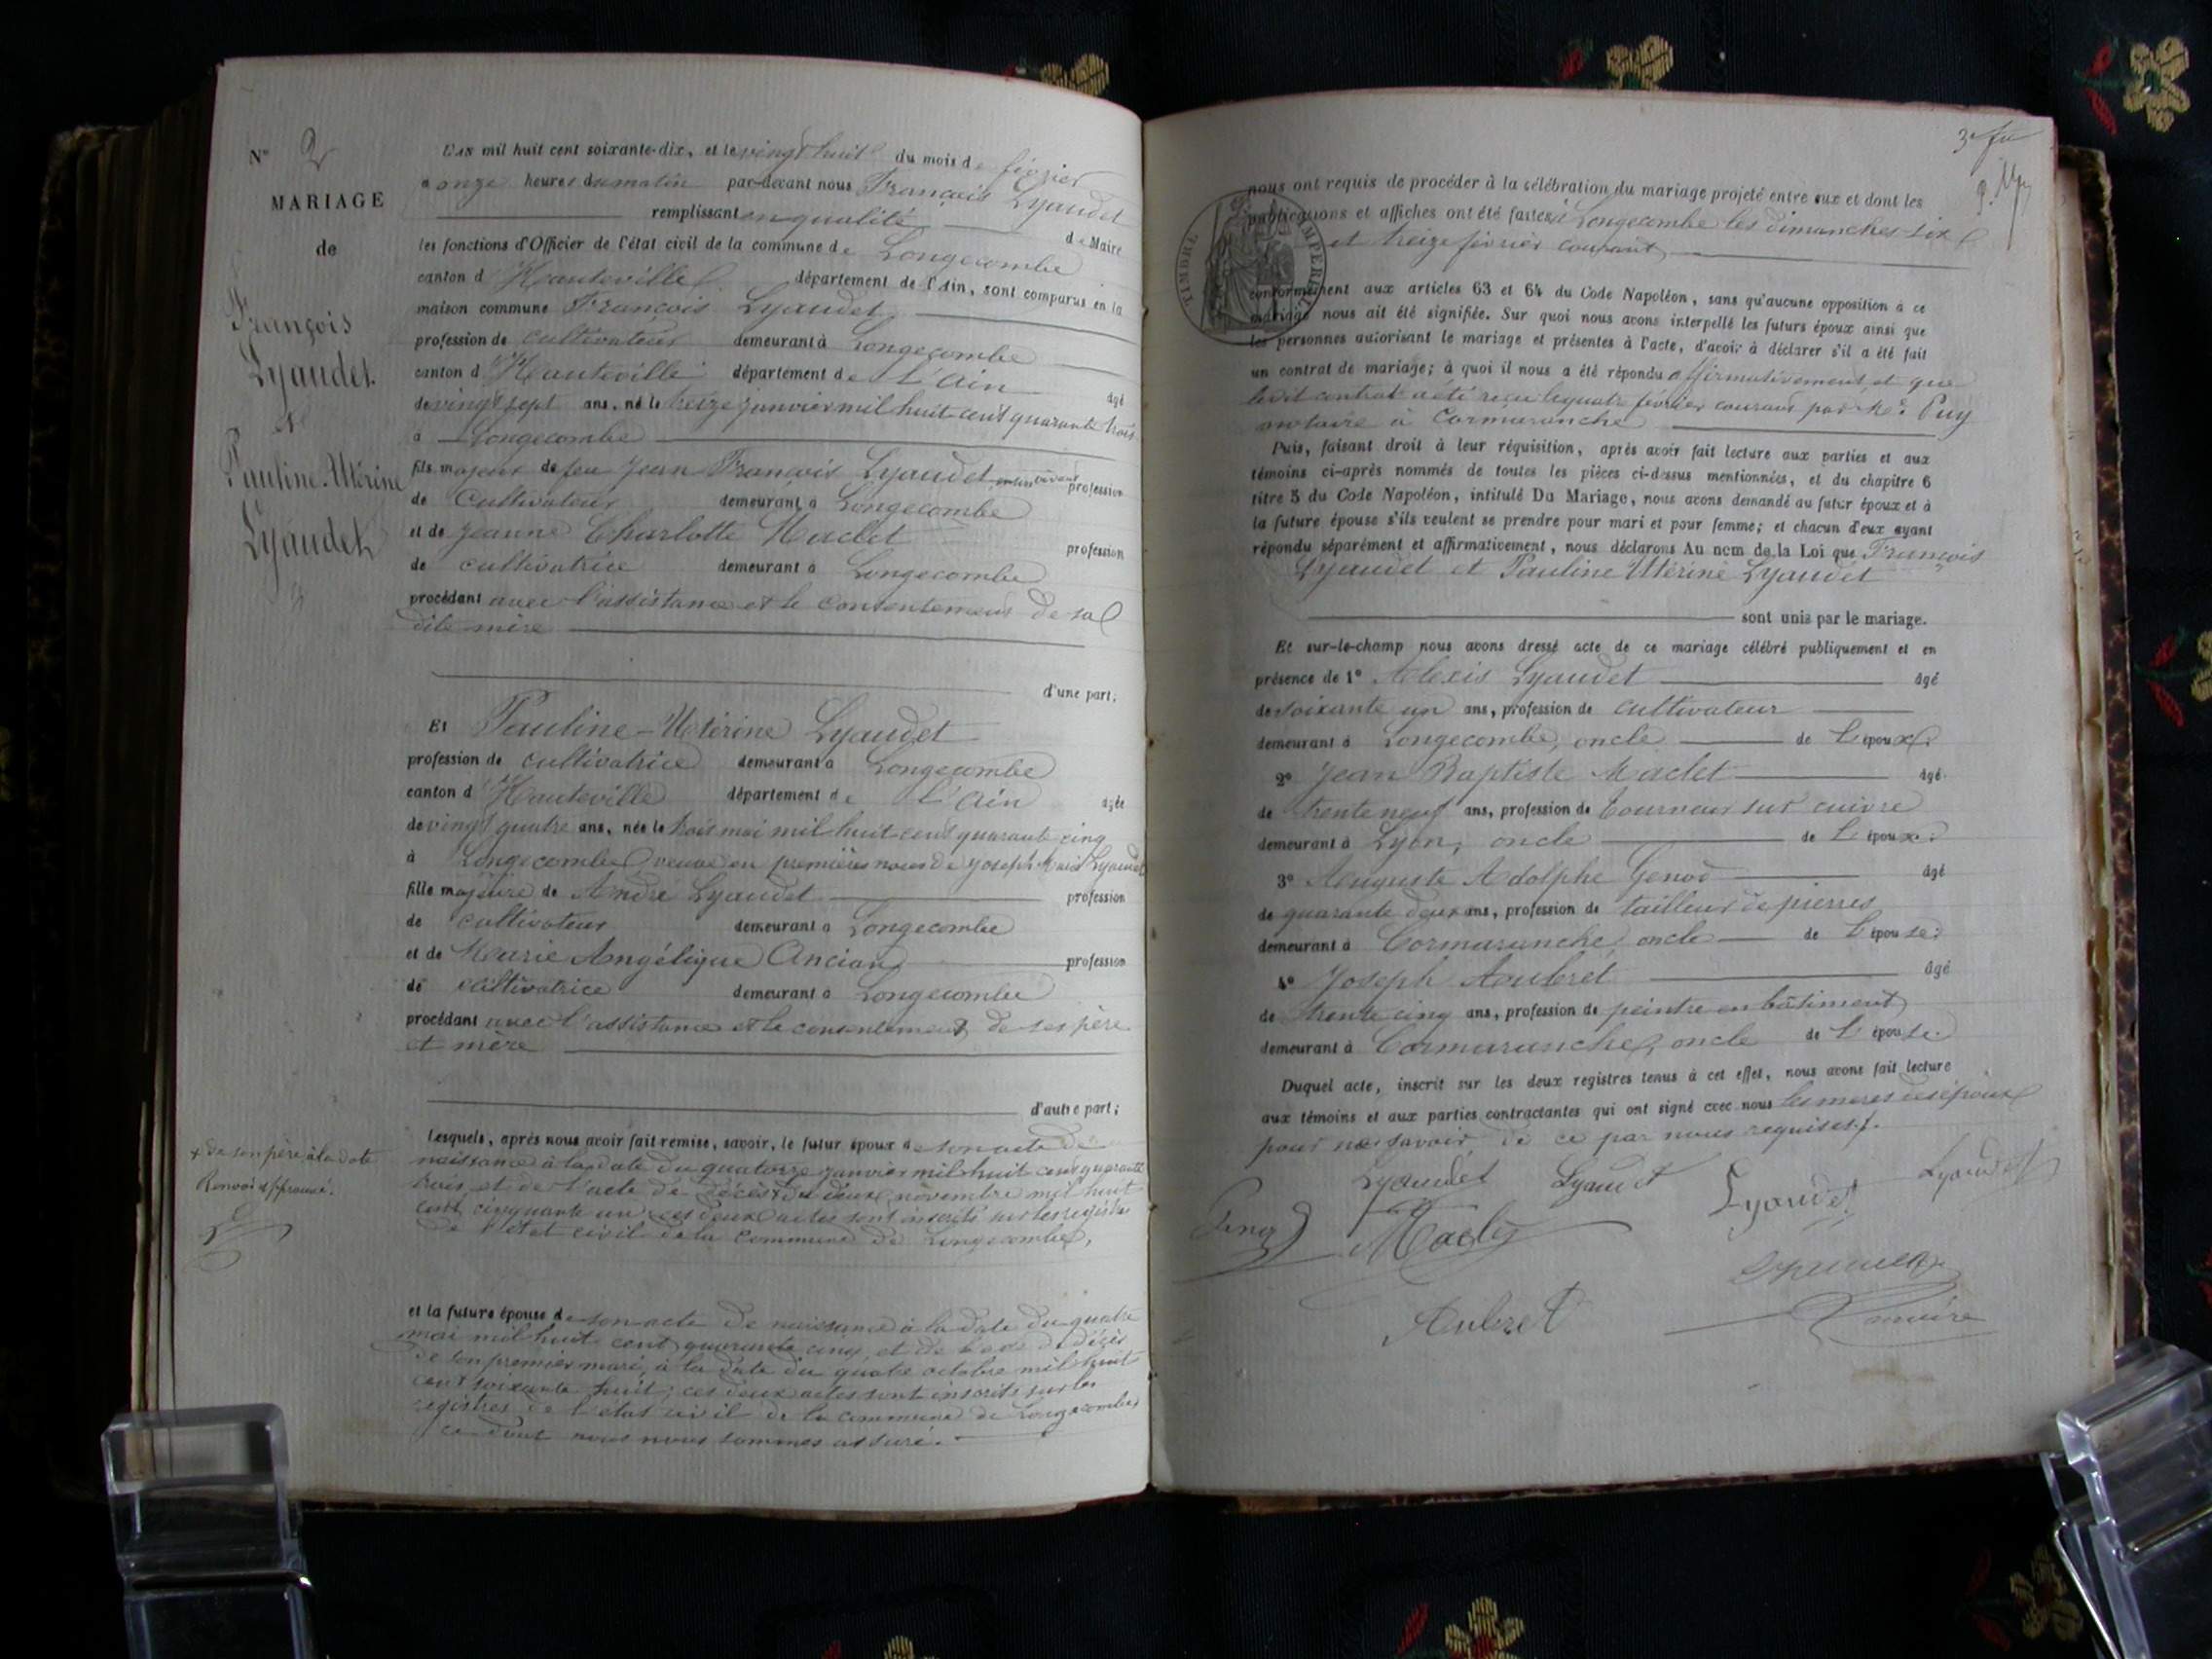 N° 2
MARIAGE
de
François
Lyaudet
et
Pauline-Utérine
Lyaudet
L'AN mil huit cent soixante-dix, et le vingt huit du mois de février
à onze heures du matin par-devant nous François Lyaudet
remplissant en qualité de Maire
les fonctions d'Officier de l'état civil de la commune de Longecombe
canton d'Hauteville département de l'Ain, sont comparus en la
maison commune François Lyaudet
profession de cultivateur demeurant à Longecombe
canton d'Hauteville département de L'Ain âgé
de vingt sept ans, né le treize janvier mil huit cent quarante trois
à Longecombe
fils majeur de feu Jean François Lyaudet en son vivant profession
de Cultivateur demeurant à Longecombe
et de Jeanne Charlotte Maclet profession
de cultivatrice demeurant à Longecombe
procédant avec l'assistance et le consentement de sa
dite mère
d'une part;
Et Pauline-Utérine Lyaudet
profession de cultivatrice demeurant à Longecombe
canton d'Hauteville département de L'Ain âgée
de vingt quatre ans, née le trois mai mil huit cent quarante cinq
à Longecombe veuve en premières noces de Joseph Marie Lyaudet
fille majeure de André Lyaudet profession
de cultivateur demeurant à Longecombe
et de Marie Angélique Ancian profession
de cultivatrice demeurant à Longecombe
procédant avec l'assistance et le consentement de ses père
et mère
d'autre part;
Lesquels, après nous avoir fait remise, savoir, le futur époux de son acte de
naissance à la date du quatorze janvier mil huit cent quarante
trois et de l'acte de décès x du deux novembre mil huit
cent cinquante un ces deux actes sont inscrits sur les registres
de l'état civil de la commune de Longecombe,
x de son père à la date
Renvoi approuvé.
et la future épouse de son acte de naissance à la date du quatre
mai mil huit cent quarante cinq, et de l'acte de décès
de son premier mari, à la date du quatre octobre mil huit
cent soixante huit; ces deux actes sont inscrits sur les
registres de l'état civil de la commune de Longecombe
ce dont nous nous sommes assuré.
TIMBRE IMPERIAL
nous ont requis de procéder à la célébration du mariage projeté entre eux et dont les
publications et affiches ont été faites à Longecombe les dimanches six
et treize février courant
conformément aux articles 63 et 64 du Code Napoléon, sans qu'aucune opposition à ce
mariage nous ait été signifiée. Sur quoi nous avons interpellé les futurs époux ainsi que
les personnes autorisant le mariage et présentes à l'acte, d'avoir à déclarer s'il a été fait
un contrat de mariage; à quoi il nous a été répondu affirmativement et que
ledit contrat a été reçu le quatre février courant par Me Puy
notaire à Cormaranche
Puis, faisant droit à leur réquisition, après avoir fait lecture aux parties et aux
témoins ci-après nommés de toutes les pièces ci-dessus mentionnées, et du chapitre 6
titre 5 du Code Napoléon, intitulé Du Mariage, nous avons demandé au futur époux et à
la future épouse s'ils veulent se prendre pour mari et pour femme; et chacun d'eux ayant
répondu séparément et affirmativement, nous déclarons Au nom de la Loi que François
Lyaudet et Pauline Utérine Lyaudet
sont unis par le mariage.
Et sur-le-champ nous avons dressé acte de ce mariage célébré publiquement et en
présence de 1° Alexis Lyaudet âgé
de soixante un ans, profession de cultivateur
demeurant à Longecombe, oncle de L'époux.
2° Jean Baptiste Maclet âgé
de trente neuf ans, profession de tourneur sur cuivre
demeurant à Lyon, oncle de L'époux.
3° Auguste Adolphe Genod âgé
de quarante deux ans, profession de tailleur de pierres
demeurant à Cormaranche, oncle de L'épouse.
4° Joseph Aubret âgé
de trente cinq ans, profession de peintre en bâtiment
demeurant à Cormaranche, oncle de L'épouse.
Duquel acte, inscrit sur les deux registres tenus à cet effet, nous avons fait lecture
aux témoins et aux parties contractantes qui ont signé avec nous les mères des époux
pour ne savoir de ce par nous requises.
Lyaudet Lyaudet Lyaudet Lyaudet
Maclet
Aubret